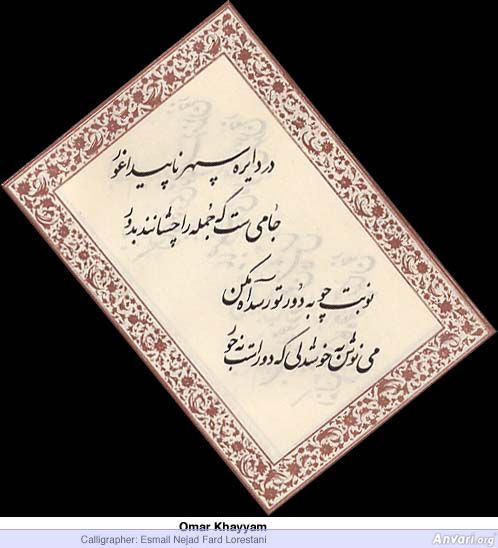 در دایره سپهر ناپیدا غور
جامی ست که جمله را چشانند بدور
نوبت چو به دور تو رسد آه مکن
می نوش به خوشدلی که دور است نه جور
Omar Khayyam
Calligrapher: Esmail Nejad Fard Lorestani
Anvari.org